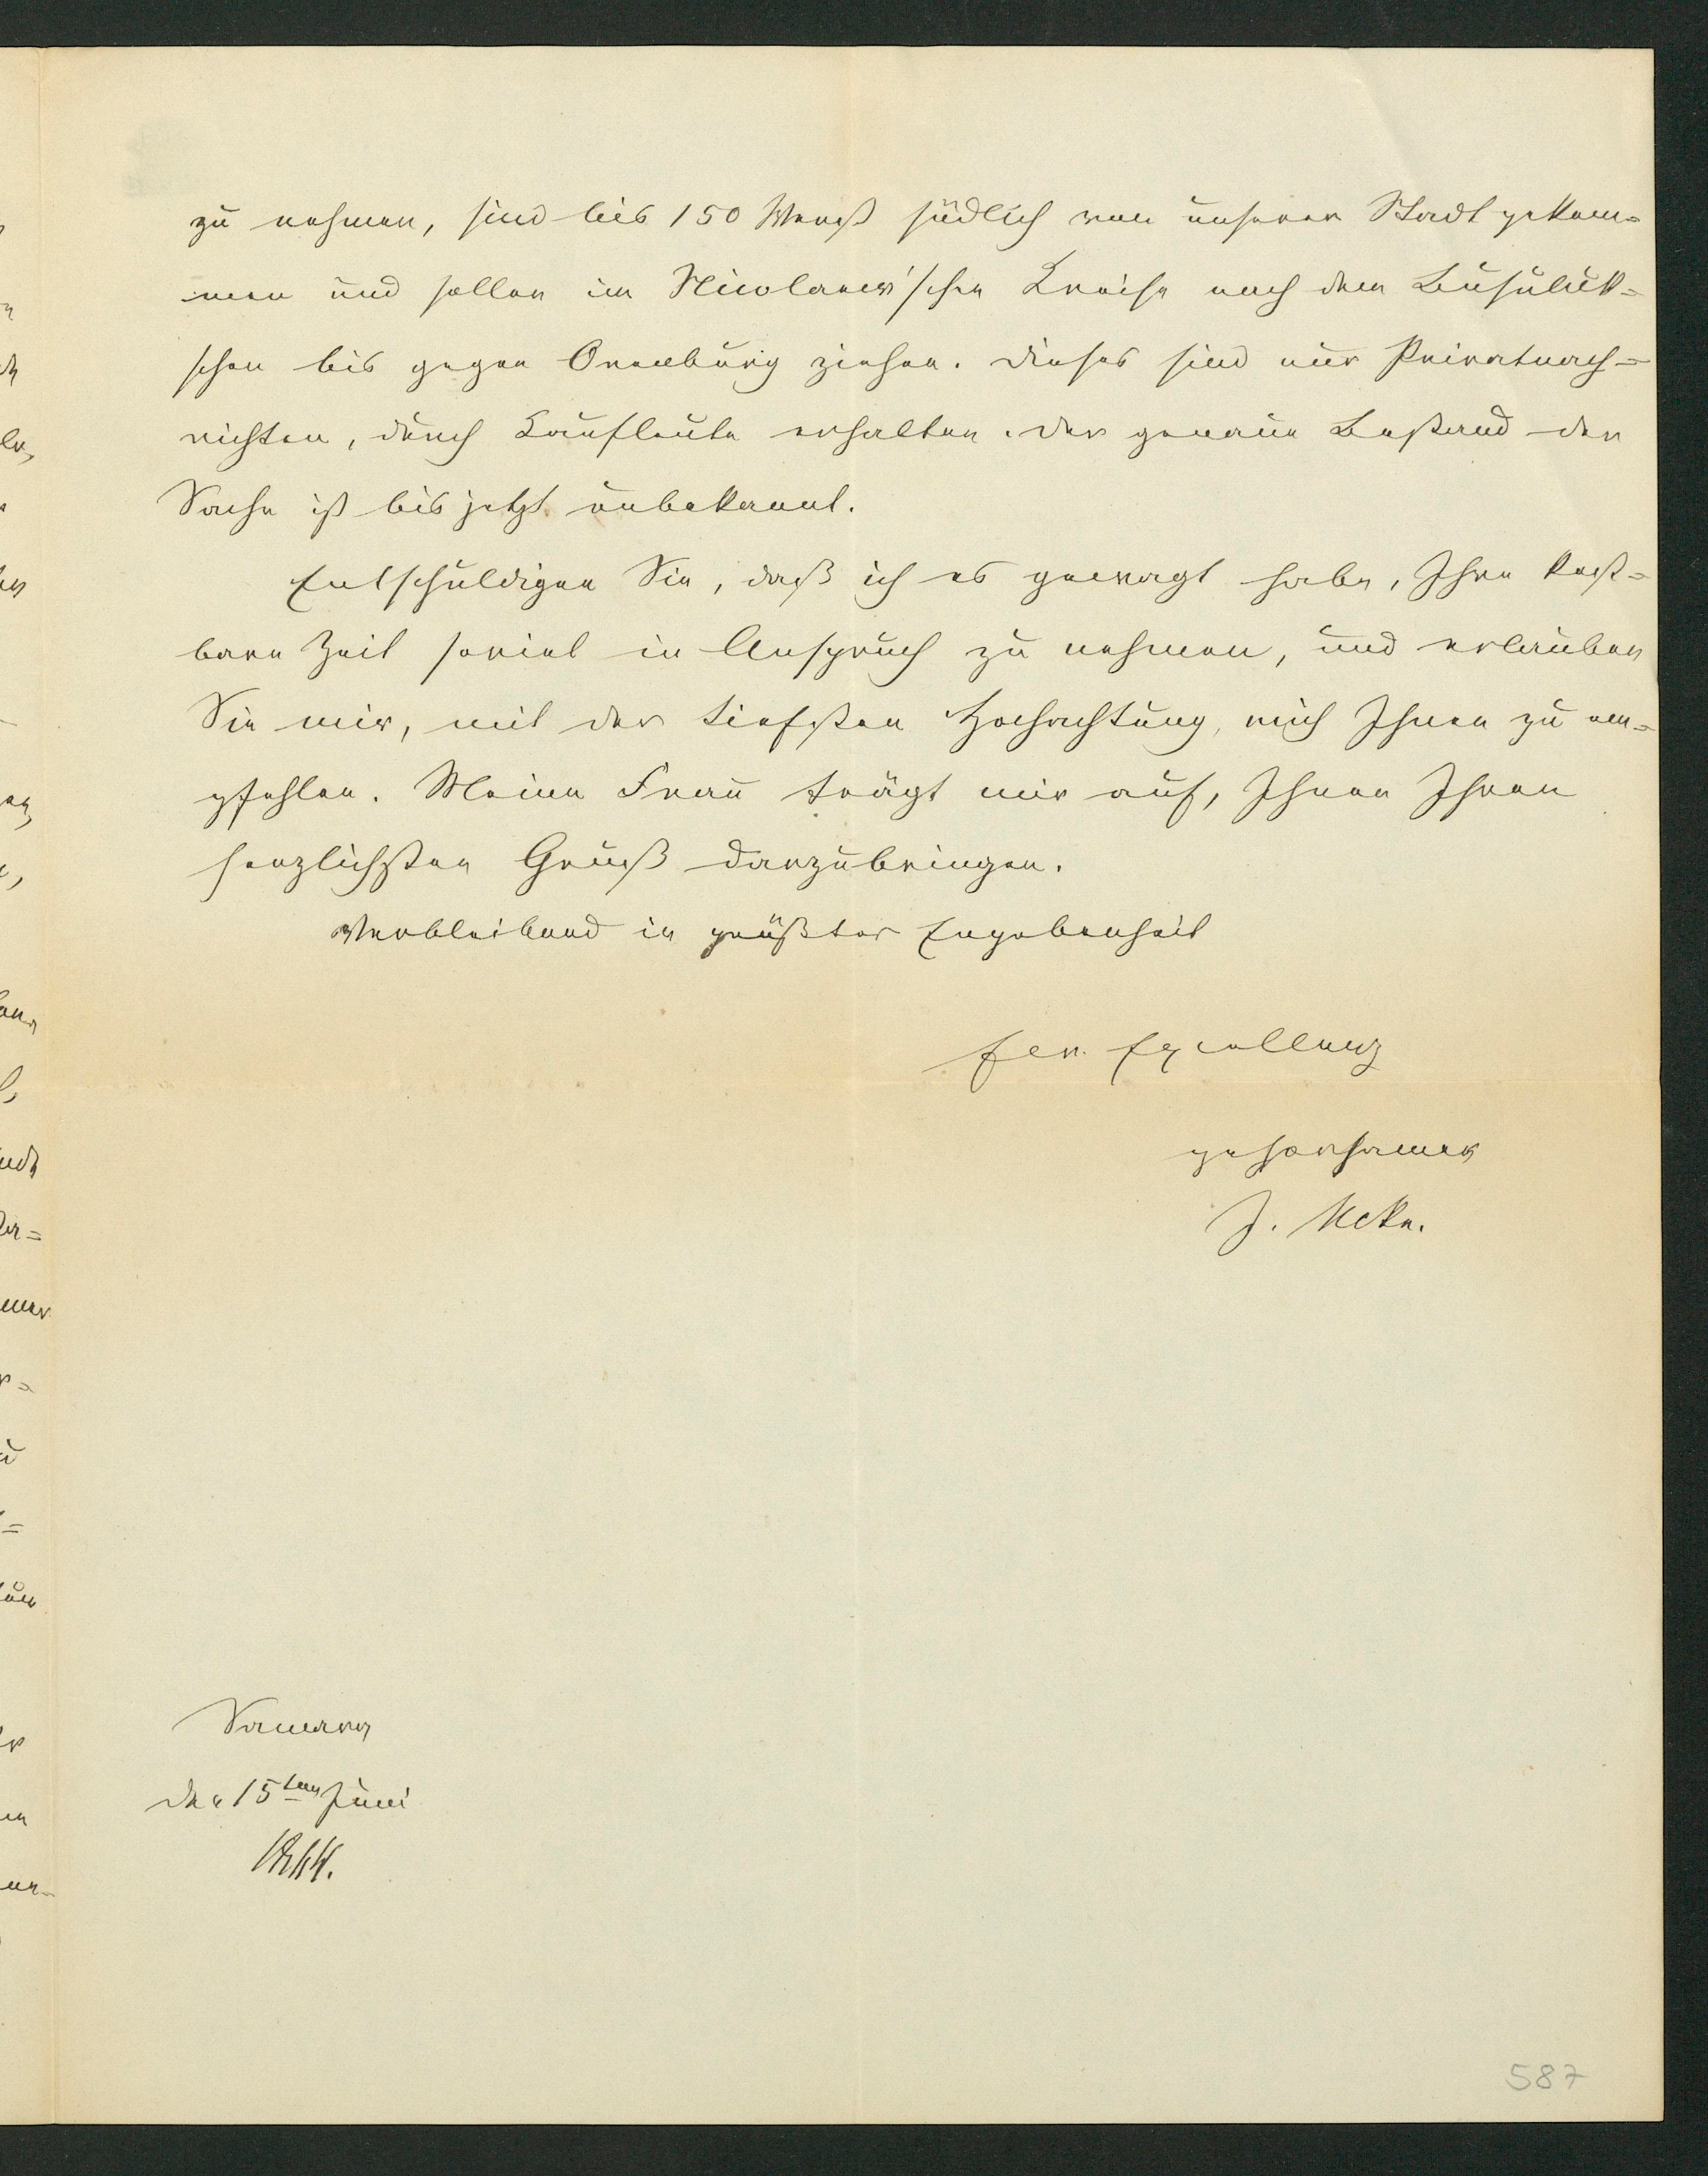 zu nehmen, sind bis 150 Werst südlich von unserer Stadt gekom=
men und sollen im Nicolaew'schen Kreise nach dem Busuluk=
schen bis gegen Orenburg ziehen. Dieses sind nur Privatnach=
richten, durch Kaufleute erhalten. Der genaue Bestand der
Sache ist bis jetzt unbekannt.
Entschuldigen Sie, daß ich es gewagt habe, Ihre kost=
bare Zeit soviel in Anspruch zu nehmen, und erlauben
Sie mir, mit der tiefsten Hochachtung, mich Ihnen zu em=
pfehlen. Meine Frau trägt mir auf, Ihnen Ihren
herzlichsten Gruß darzubringen.
Verbleibend in größter Ergebenheit
Ew. Excellenz
gehorsamer
J. Ucke.
Samara
den 15ten Juni
1844.
587